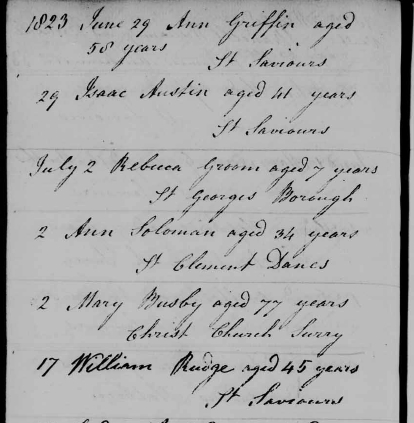 1823 June 29 Ann Griffin aged
58 years
St Saviours
29 Isaac Austin aged 41 years
St Saviours
July 2 Rebecca Groom aged 7 years
St Georges Borough
2 Ann Soloman aged 34 years
St Clement Danes
2 Mary Busby aged 77 years
Christ Church Surry
17 William Rudge aged 45 years
St Saviours